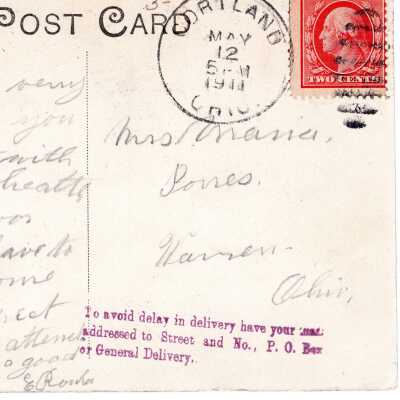 POST CARD
CORTLAND
MAY
12
5 PM
1911
OHIO.
TWO CENTS
very
you
with
health
have to
ome
attend
a good
Mrs Maria.
Jones.
Warren.
Ohio,
To avoid delay in delivery have your mail
addressed to Street and No., P. O. Box
or General Delivery.